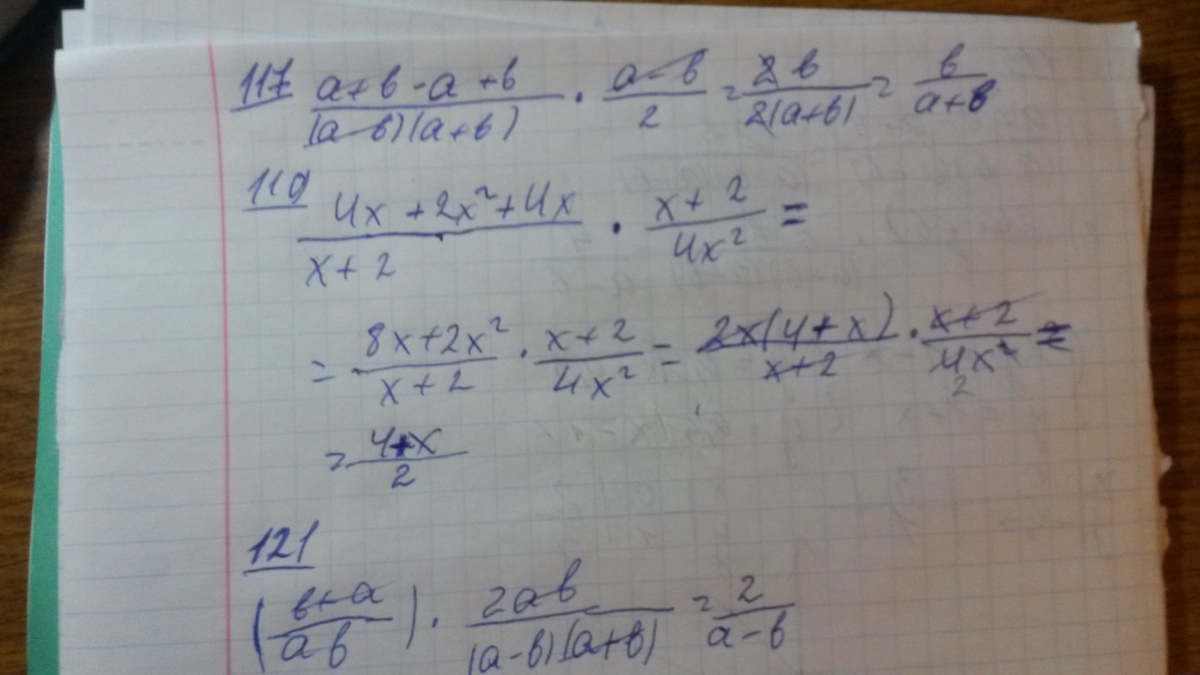 117 (a+b-a+b)/((a-b)(a+b)) · (a-b)/2 = 2b/(2(a+b)) = b/(a+b)
119 (4x+2x²+4x)/(x+2) · (x+2)/(4x²) =
= (8x+2x²)/(x+2) · (x+2)/(4x²) = (2x(4+x))/(x+2) · (x+2)/(4x²) =
2
= (4+x)/2
121
((b+a)/(ab)) · (2ab)/((a-b)(a+b)) = 2/(a-b)